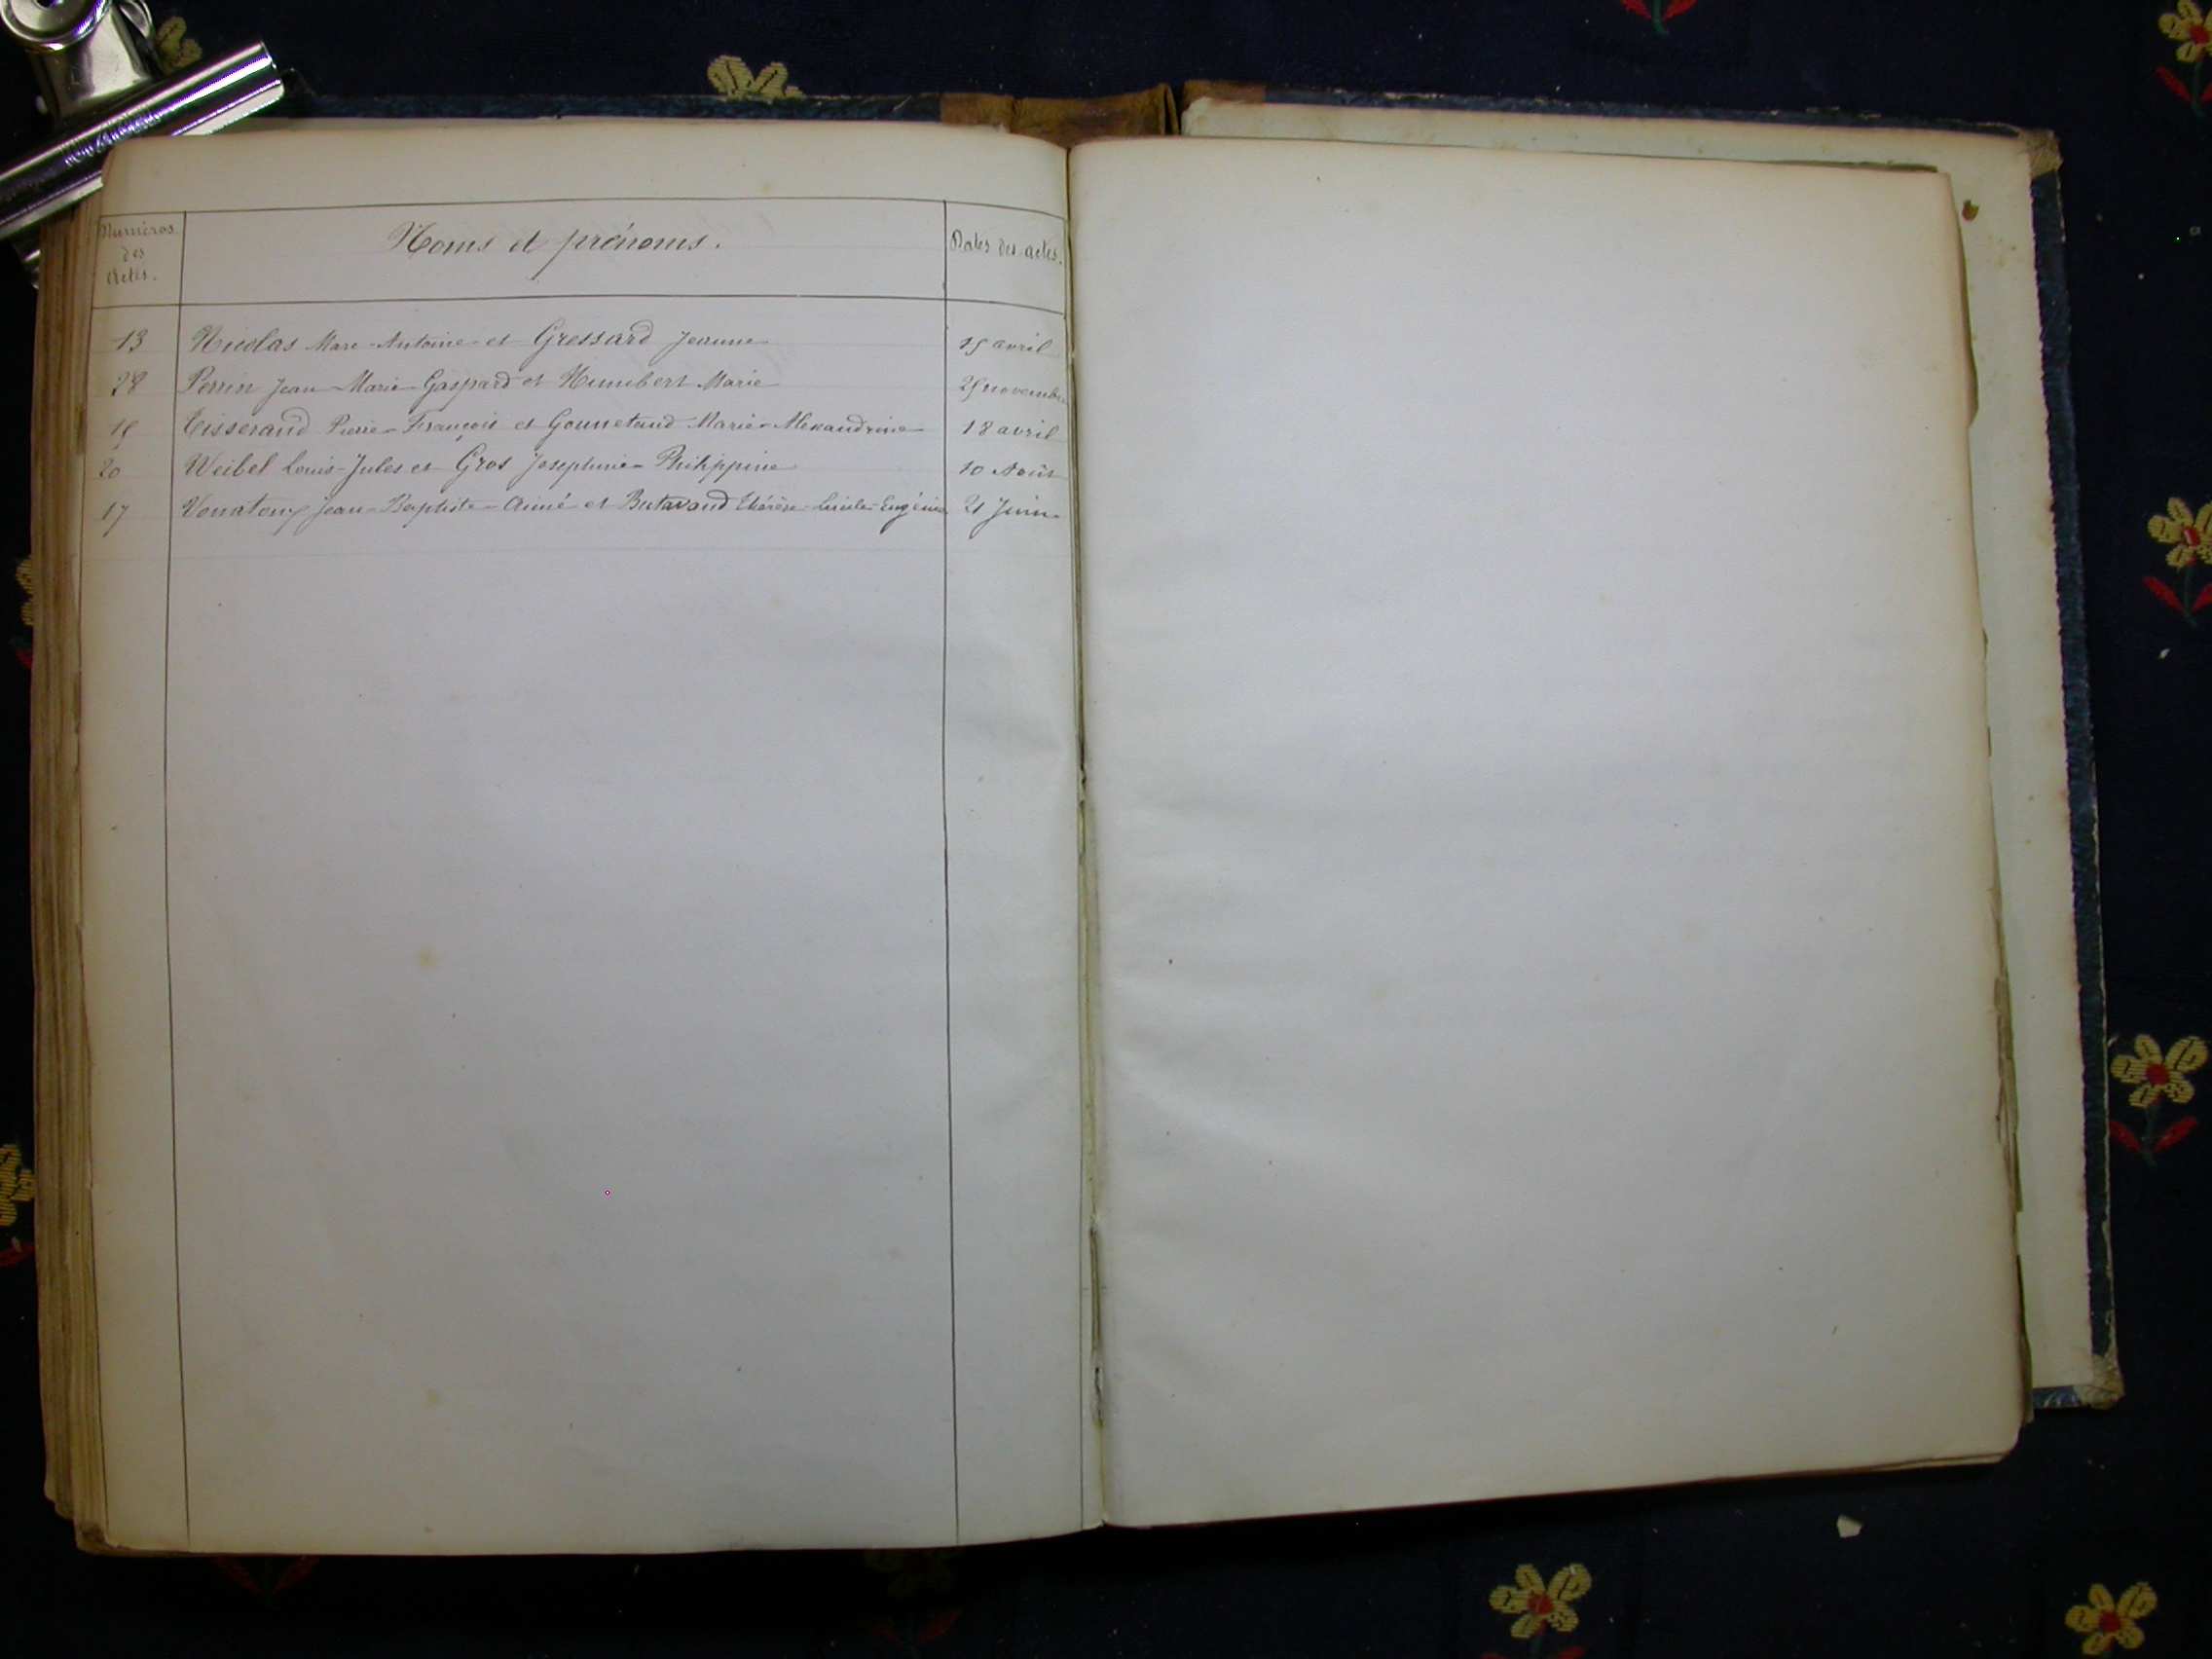 Numéros des Actes.
Noms et prénoms.
Dates des actes.
13 Nicolas Marc-Antoine et Gressard Jeanne 15 avril
28 Perrin Jean-Marie-Gaspard et Humbert Marie 29 novembre
15 Tisserand Pierre-François et Gounetaud Marie-Alexandrine 18 avril
20 Weibel Louis-Jules et Gros Josephine-Philippine 10 Août
17 Jean-Baptiste-Aimé et Butavand Thérèse-Cécile-Eugénie 21 Juin